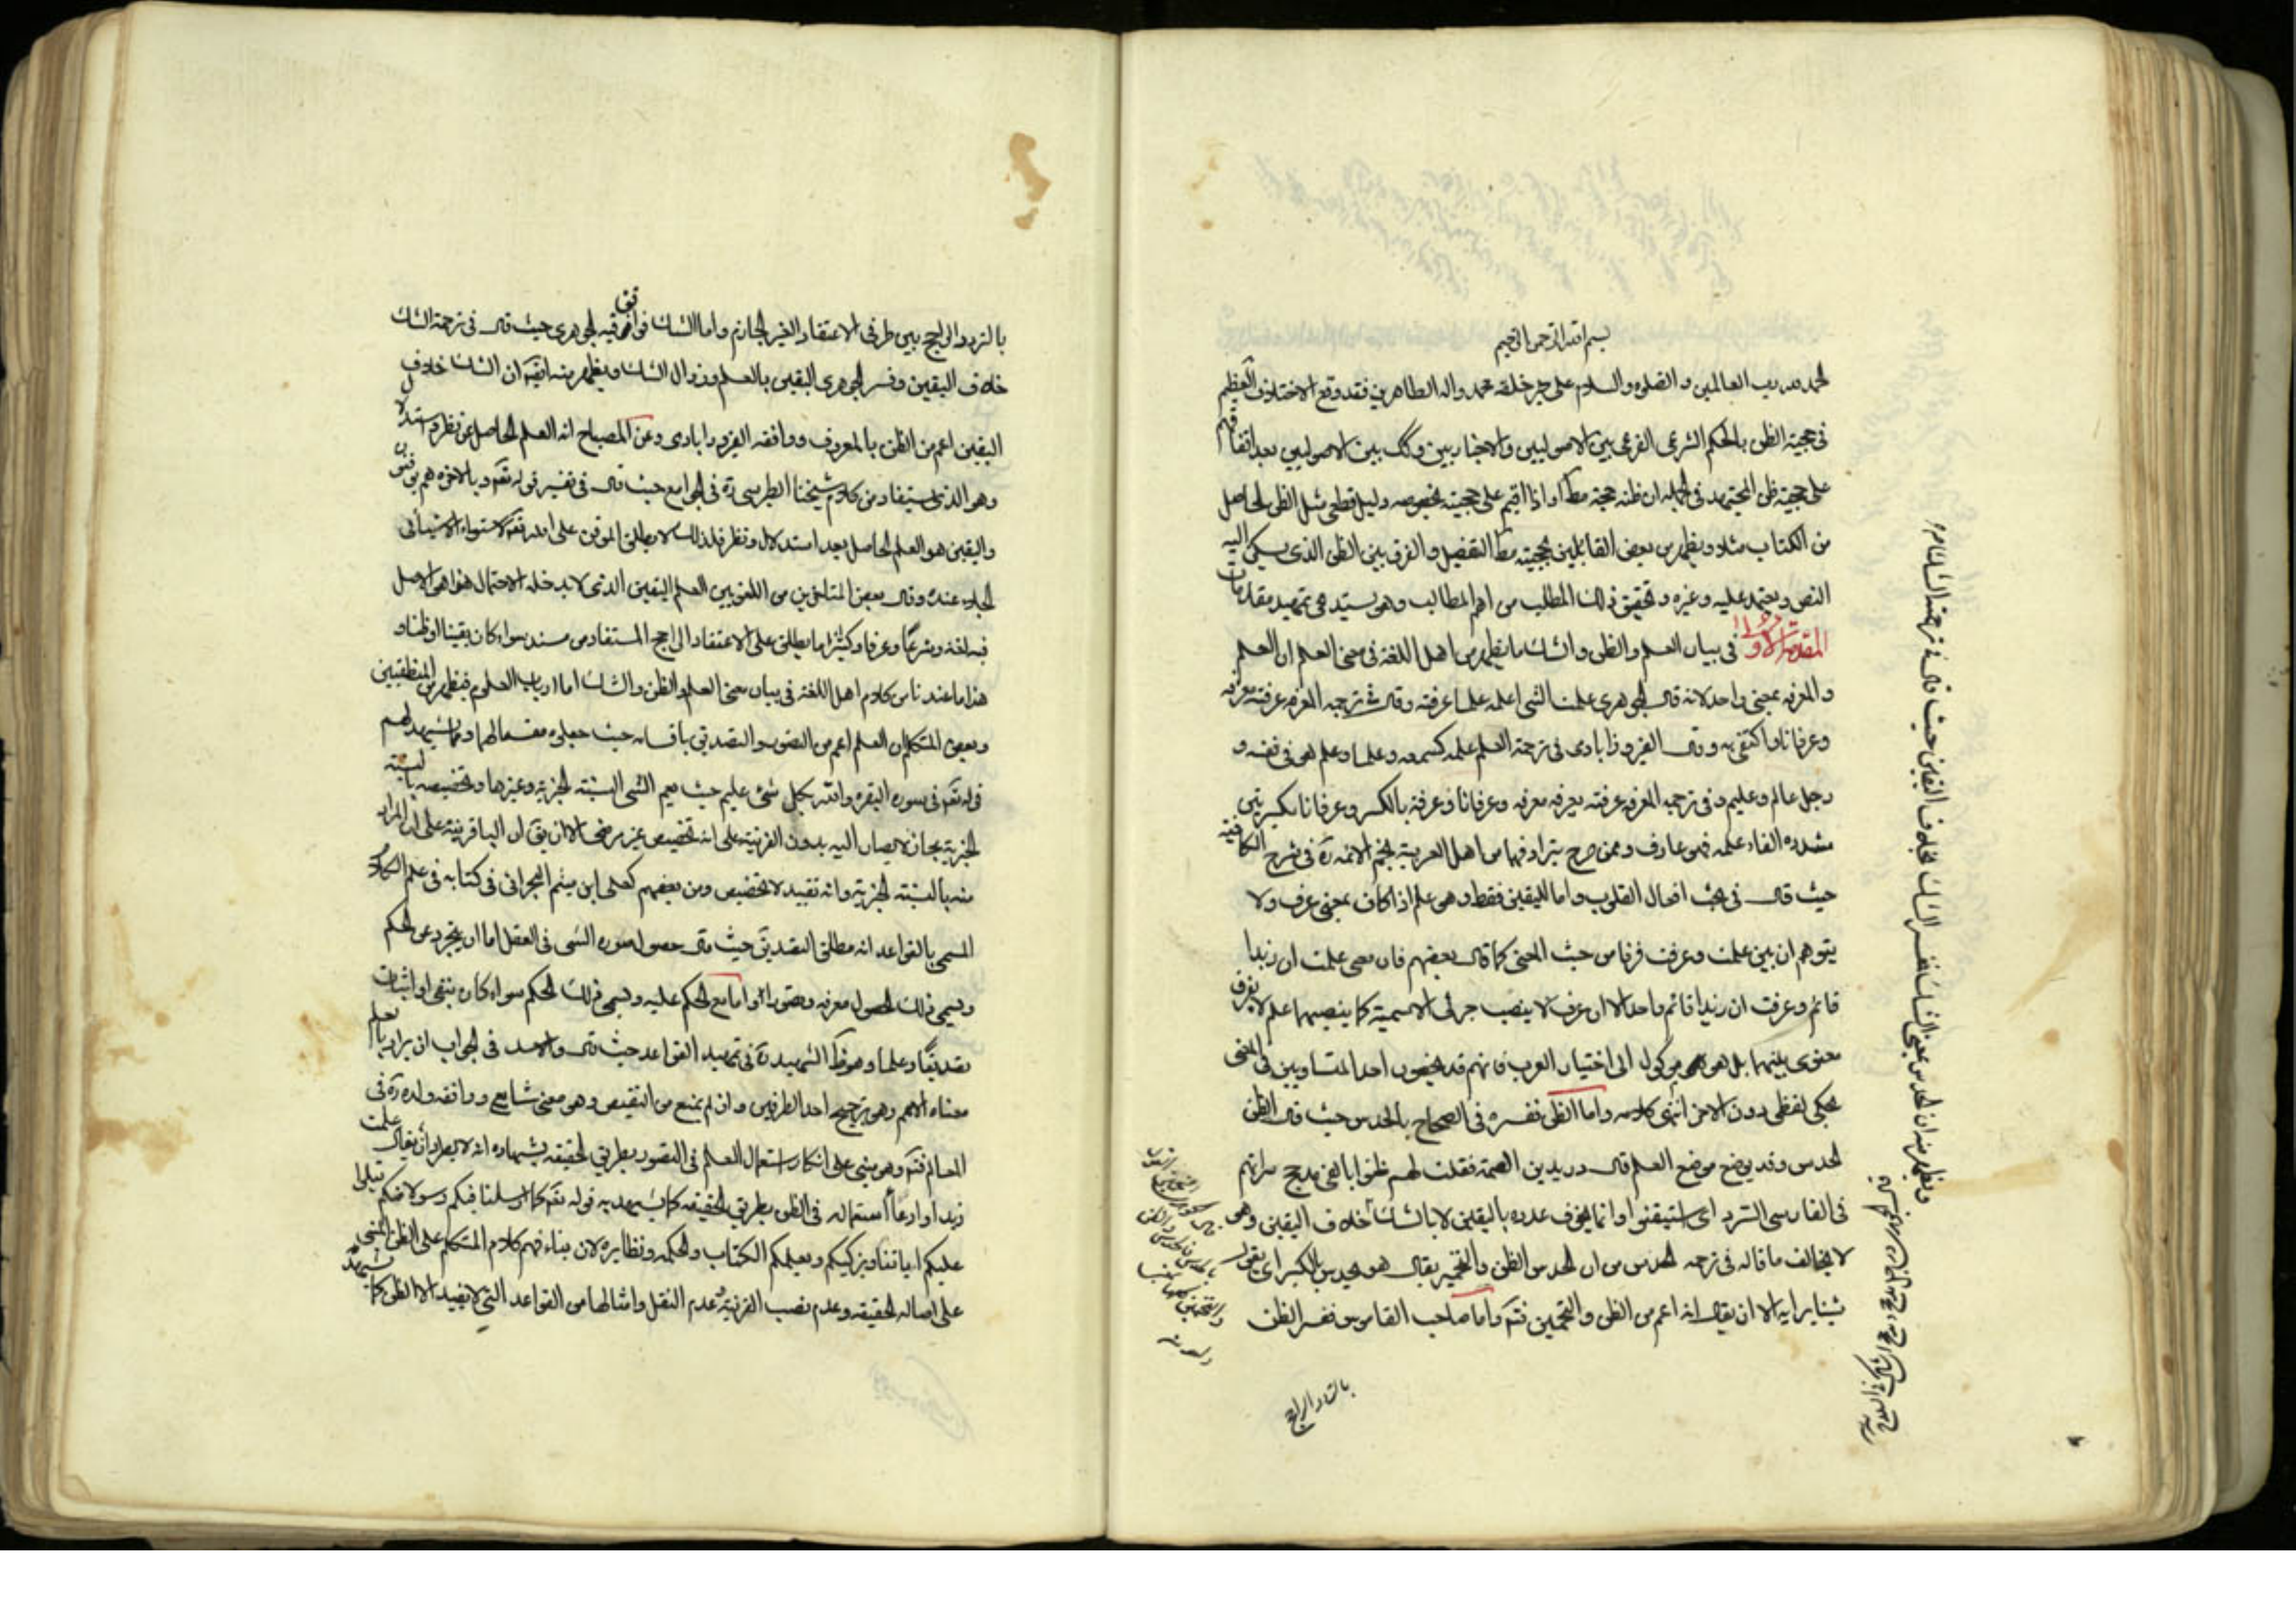 بسم الله الرحمن الرحيم
الحمد لله رب العالمين والصلوة والسلام على خير خلقه محمد واله الطاهرين فقد وقع الاختلاف العظيم
فى حجية الظن بالحكم الشرعى الفرعى بين الاصوليين والاخباريين وكك بين الاصوليين بعد اتفاقهم
على حجية ظن المجتهد فى الجملة ان ظنه حجة مط او اذا اقيم على حجيته بخصوصه دليل قطعى مثل الظن الحاصل
من الكتاب مثلا ويظهر من بعض القائلين بحجيته مط التفصيل والفرق بين الظن الذى يسكن اليه
النفس ويعتمد عليه وغيره وتحقيق ذلك المطلب من اهم المطالب وهو يستدعى تمهيد مقدمات
المقدمة الاولى فى بيان العلم والظن والشك ما يظهر من اهل اللغة فى معنى العلم ان العلم
والمعرفه بمعنى واحد لانه قال الجوهرى علمت الشى اعلمه علما عرفته وقال فى ترجمه المعرفه عرفته معرفه
وعرفانا واكتفى به وقال الفيروزابادى فى ترجمة العلم علمه كسمعه وعلما وعلم هو فى نفسه و
رجل عالم وعليم وفى ترجمه المعرفه عرفته يعرفه معرفه وعرفانا وعرفة بالكسر وعرفانا بكسرتين
مشدده الفاء علمه فهو عارف وممن صرح بترادفهما من اهل العربية نجم الائمه ره فى شرح الكافيه
حيث قال فى بحث افعال القلوب واما لليقين فقط وهو علم اذا كان بمعنى عرف ولا
يتوهم ان بين علمت وعرفت فرقا من حيث المعنى كما قال بعضهم فان معنى علمت ان زيدا
قائم وعرفت ان زيدا قائم واحد الا ان عرف لا ينصب جزئى الاسمية كما ينصبهما علم لا لفرق
معنوى بينهما بل هو موكول الى اختيار العرب فانهم قد يخصون احد المتساويين فى المعنى
بحكم لفظى دون الاخر انتهى كلامه واما الظن ففسره فى الصحاح بالحدس حيث قال الظن
الحدس وقد يوضع موضع العلم قال دريد بن الصمة فقلت لهم ظنوا بالفى مدجج سراتهم
فى الفارسى المسرد اى استيقنوا وانما يخوف عدوه باليقين لا بالشك خلاف اليقين وهو
لا يخالف ما قاله فى ترجمه الحدس من ان الحدس الظن والتخمين يقال هو يحدس بالكسر اى يقول
شيئا برايه الا ان يقال انه اعم من الظن والتخمين فتم واما صاحب القاموس ففسر الظن
بالتردد الراجح
ويظهر منه ان الحدس بمعنى الشك
بالتردد الراجح بين طرفى الاعتقاد الغير الجازم واما الشك فوافق فيه الجوهرى حيث قال فى ترجمة الشك
خلاف اليقين وفسر الجوهرى اليقين بالعلم وزوال الشك ويظهر منه ايضا ان الشك خلاف
اليقين اعم من الظن بالمعروف ووافقه الفيروزابادى وعن المصباح انه العلم الحاصل عن نظر واستدلال
وهو الذى يستفاد من كلام شيخنا الطبرسى ره فى الجوامع حيث قال فى تفسير قوله تعم وبالاخرة هم يوقنون
واليقين هو العلم الحاصل بعد استدلال ونظر فلذلك لا يطلق الموقن على الله تعم لاستواء الاشياء فى
الجلاء عنده وقال بعض المتاخرين من اللغويين العلم اليقين الذى لا يدخله الاحتمال هذا هو الاصل
فيه لغة وشرعا وعرفا وكثيرا ما يطلق على الاعتقاد الراجح المستفاد من مسند سواء كان يقينا او ظنا و
هذا ما عندنا من كلام اهل اللغة فى بيان معنى العلم والظن والشك اما ارباب العلوم فيظهر من المنطقيين
وبعض المتكلمين ان العلم اعم من التصور والتصديق باقسامه حيث جعلوه مقسما لهما ومما يشهد لهم
قوله تعم فى سورة البقره والله بكل شئ عليم حيث يعم الشى النسبة الخبرية وغيرها وتخصيصه بالنسبة
الخبرية مجاز لا يصار اليه بدون القرينة على انه تخصيص غير مرضى الا ان يق ان الباء قرينة على ان المراد
منه بالنسبة الخبرية وانه تقييد لا تخصيص ومن بعضهم كعلى ابن ميثم البحرانى فى كتابه فى علم الكلام
المسمى بالقواعد انه مطلق التصديق حيث قال حصول صورة الشى فى العقل اما ان يتجرد عن الحكم
ويسمى ذلك الحصول معرفه وتصورا واما مع الحكم عليه ويسمى ذلك الحكم سواء كان بنفى او اثبات
تصديقا وعلما وهو ظ الشهيد ره فى تمهيد القواعد حيث قال والاسد فى الجواب ان يراد بالعلم
معناه الاعم وهو ترجيح احد الطرفين وان لم يمنع من النقيض وهو معنى شايع ووافقه ولده ره فى
المعالم فتم وهو مبنى على انكار استعمال العلم فى التصور بطريق الحقيقه بشهادة انه لا يطرد ان يقال علمت
زيدا وادعاء استعماله فى الظن بطريق الحقيقه كما يشهد به قوله تعم كما ارسلنا فيكم رسولا منكم يتلوا
عليكم اياتنا ويزكيكم ويعلمكم الكتاب والحكمه ونظايره لان بناء فهم كلام المتكلم على الظن المبنى
على اصالة الحقيقه وعدم نصب القرينة وعدم النقل وامثالها من القواعد التى لا يفيد الا الظن كما يشهد